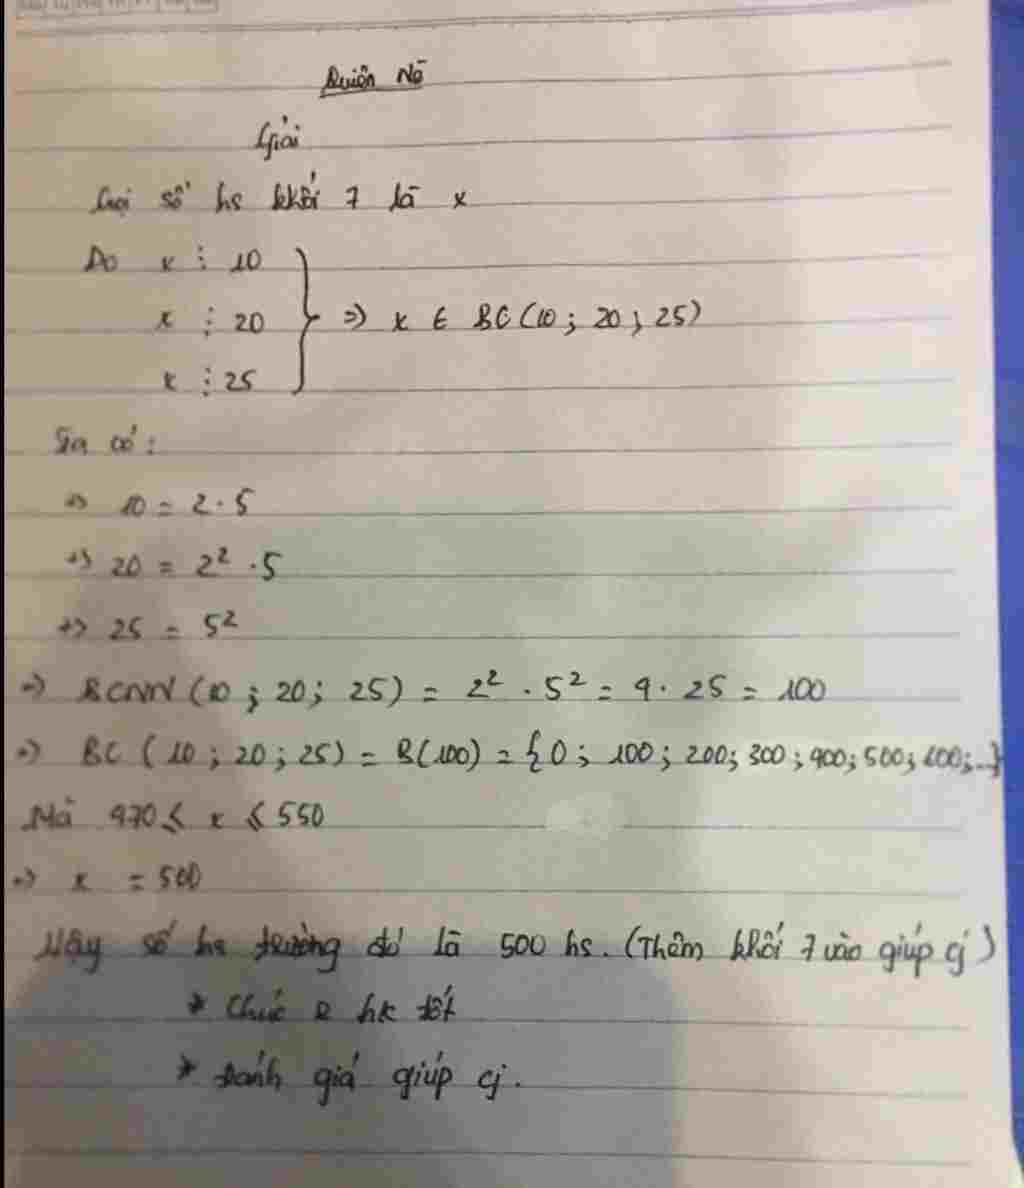 Giải
Gọi số hs khối 7 là x
Do x ⋮ 10
x ⋮ 20 } => x ∈ BC(10 ; 20 ; 25)
x ⋮ 25
Ta có :
=> 10 = 2 . 5
=> 20 = 2² . 5
=> 25 = 5²
=> BCNN (10 ; 20 ; 25) = 2² . 5² = 4 . 25 = 100
=> BC (10 ; 20 ; 25) = B(100) = {0 ; 100 ; 200; 300 ; 400; 500; 600; ...}
Mà 470 ≤ x ≤ 550
=> x = 500
Vậy số hs trường đó là 500 hs. (Thêm khối 7 vào giúp cj)
* Chúc e hk tốt
* Đánh giá giúp cj.